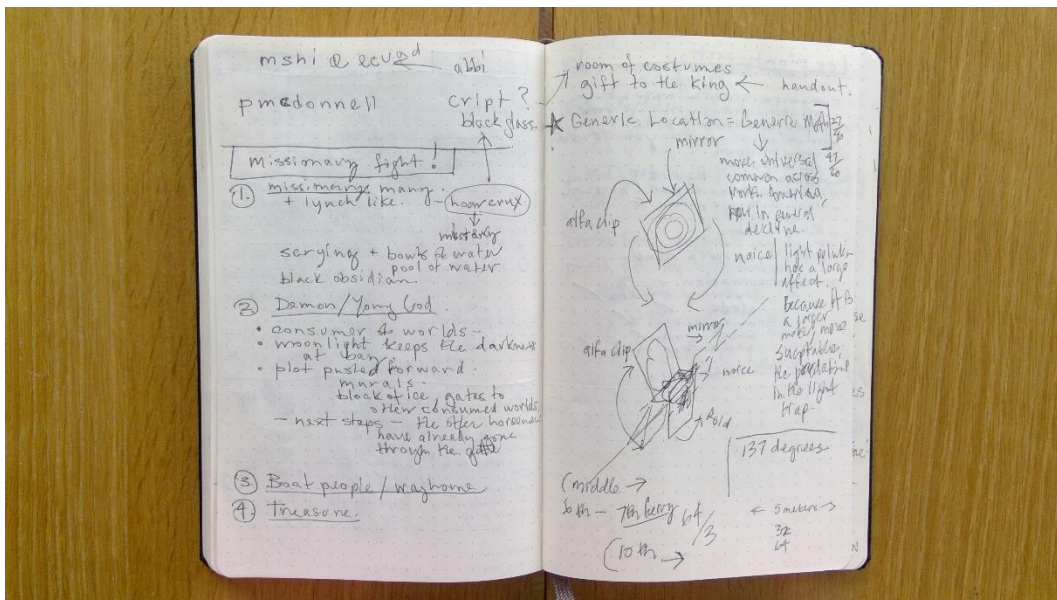 mshi @ ecuad
abbi
pmcdonnell
cript?
black glass
missionary fight!
1. missionary many
+ lynch like.
scrying + bowls of water
pool of water
black obsidian
2 Demon/Yomy God
• consumer of worlds -
• moonlight keeps the darkness
at bay.
• plot pushed forward -
murals -
block of ice, gates to
other consumed worlds
- next steps - the other horsemen
have already gone
through the gate
3. Boat people / way home
4. Treasure.
room of costumes
gift to the king ← handout.
Generic Location = Generic Moth
mirror
more universal
common across
North America
decline.
alfa clip
noice
light pollution
has a large
affect.
because
a larger
mirror
alfa clip
noice
in the light
trap
137 degrees
(middle →
6th - 7th berry 64/3
← 5 meters →
32
64
(10th →